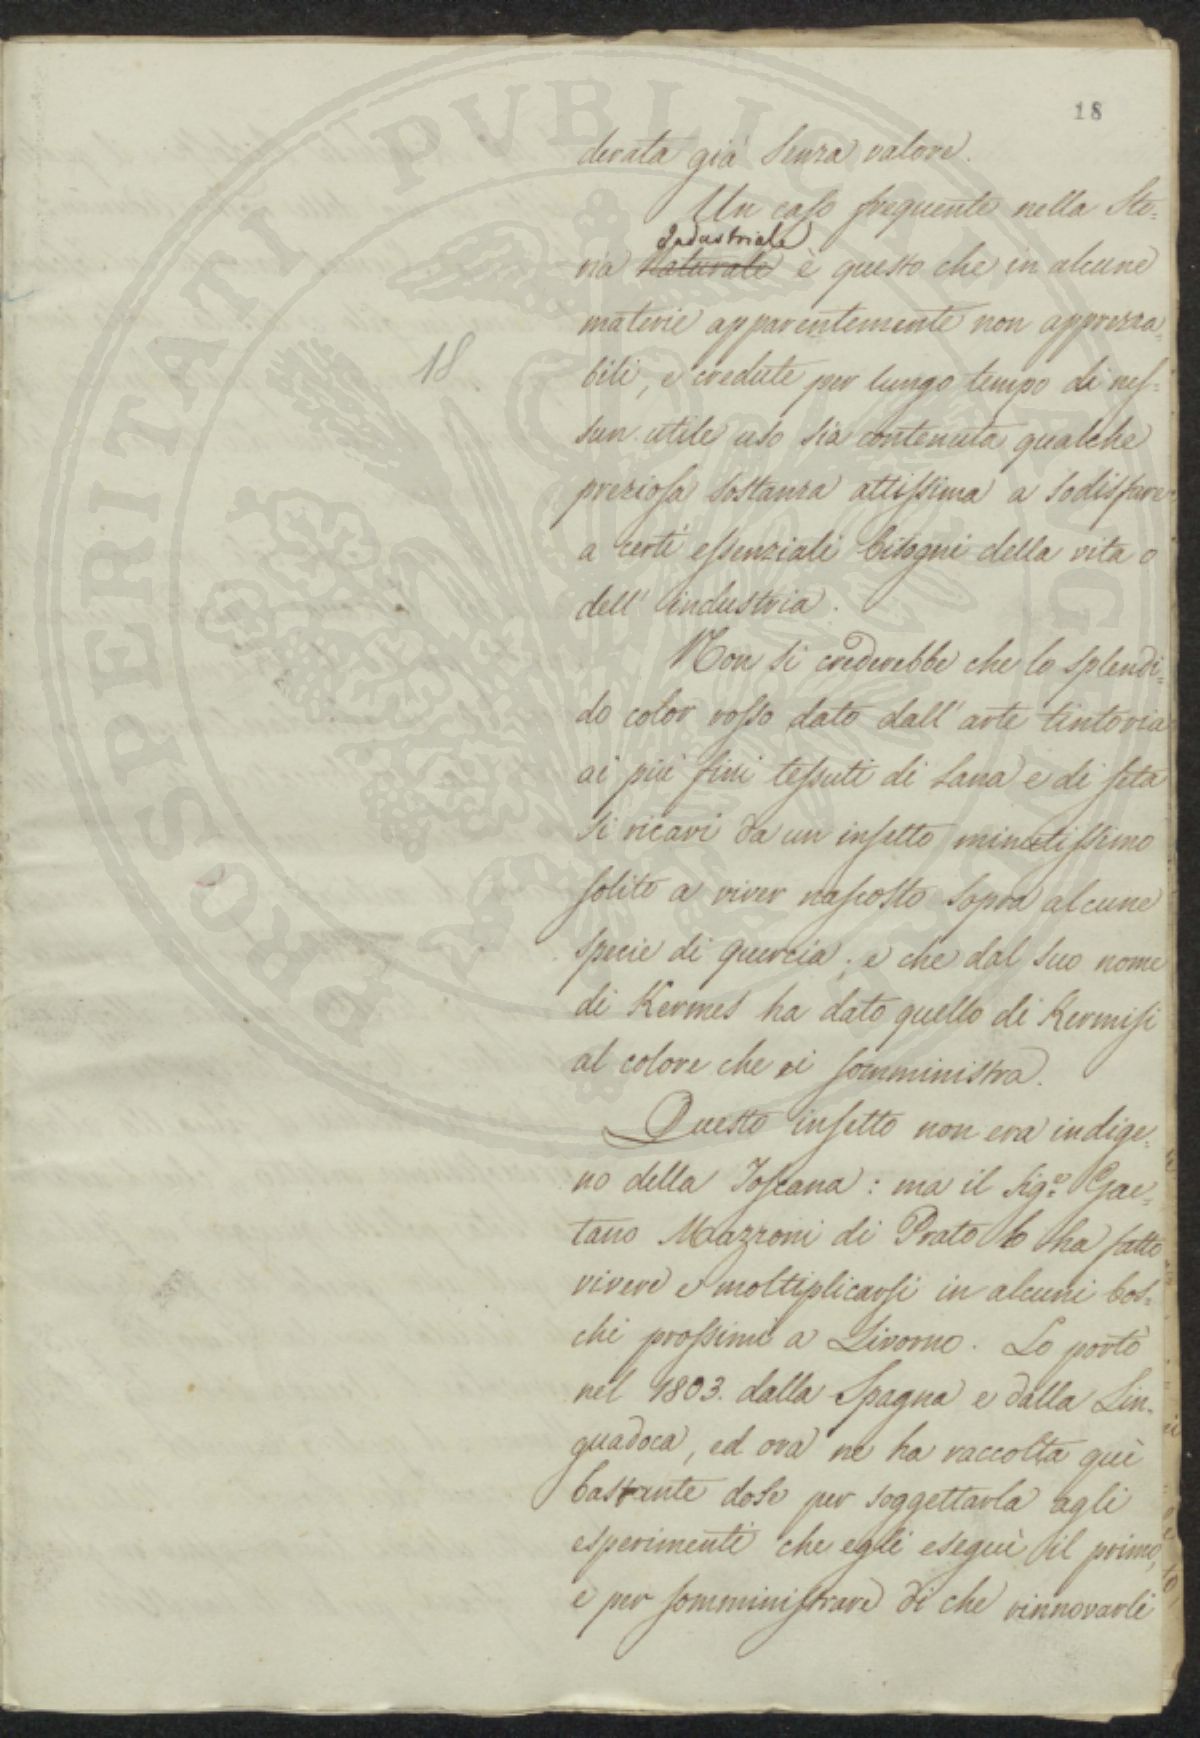 18
derata già senza valore.
Un caso frequente nella Sto-
Industriale
ria Naturale è questo che in alcune
materie apparentemente non apprezza-
bili, e credute per lungo tempo di nes-
sun utile uso sia contenuta qualche
preziosa sostanza attissima a sodisfare
a certi essenziali bisogni della vita o
dell' industria.
18
Non si crederebbe che lo splendi-
do color rosso dato dall' arte tintoria
ai più fini tessuti di lana e di seta
si ricavi da un insetto minutissimo
solito a viver nascosto sopra alcune
specie di quercia; e che dal suo nome
di Kermes ha dato quello di Kermisi
al colore che ci somministra.
Questo insetto non era indige-
no della Toscana: ma il Sig.º Gae-
tano Mazzoni di Prato lo ha fatto
vivere e moltiplicarsi in alcuni bos-
chi prossimi a Livorno. Lo portò
nel 1803. dalla Spagna e dalla Lin-
guadoca, ed ora ne ha raccolta qui
bastante dose per soggettarla agli
esperimenti che egli eseguì il primo,
e per somministrare di che rinnovarli
PROSPERITATI PVBLICAE AVG